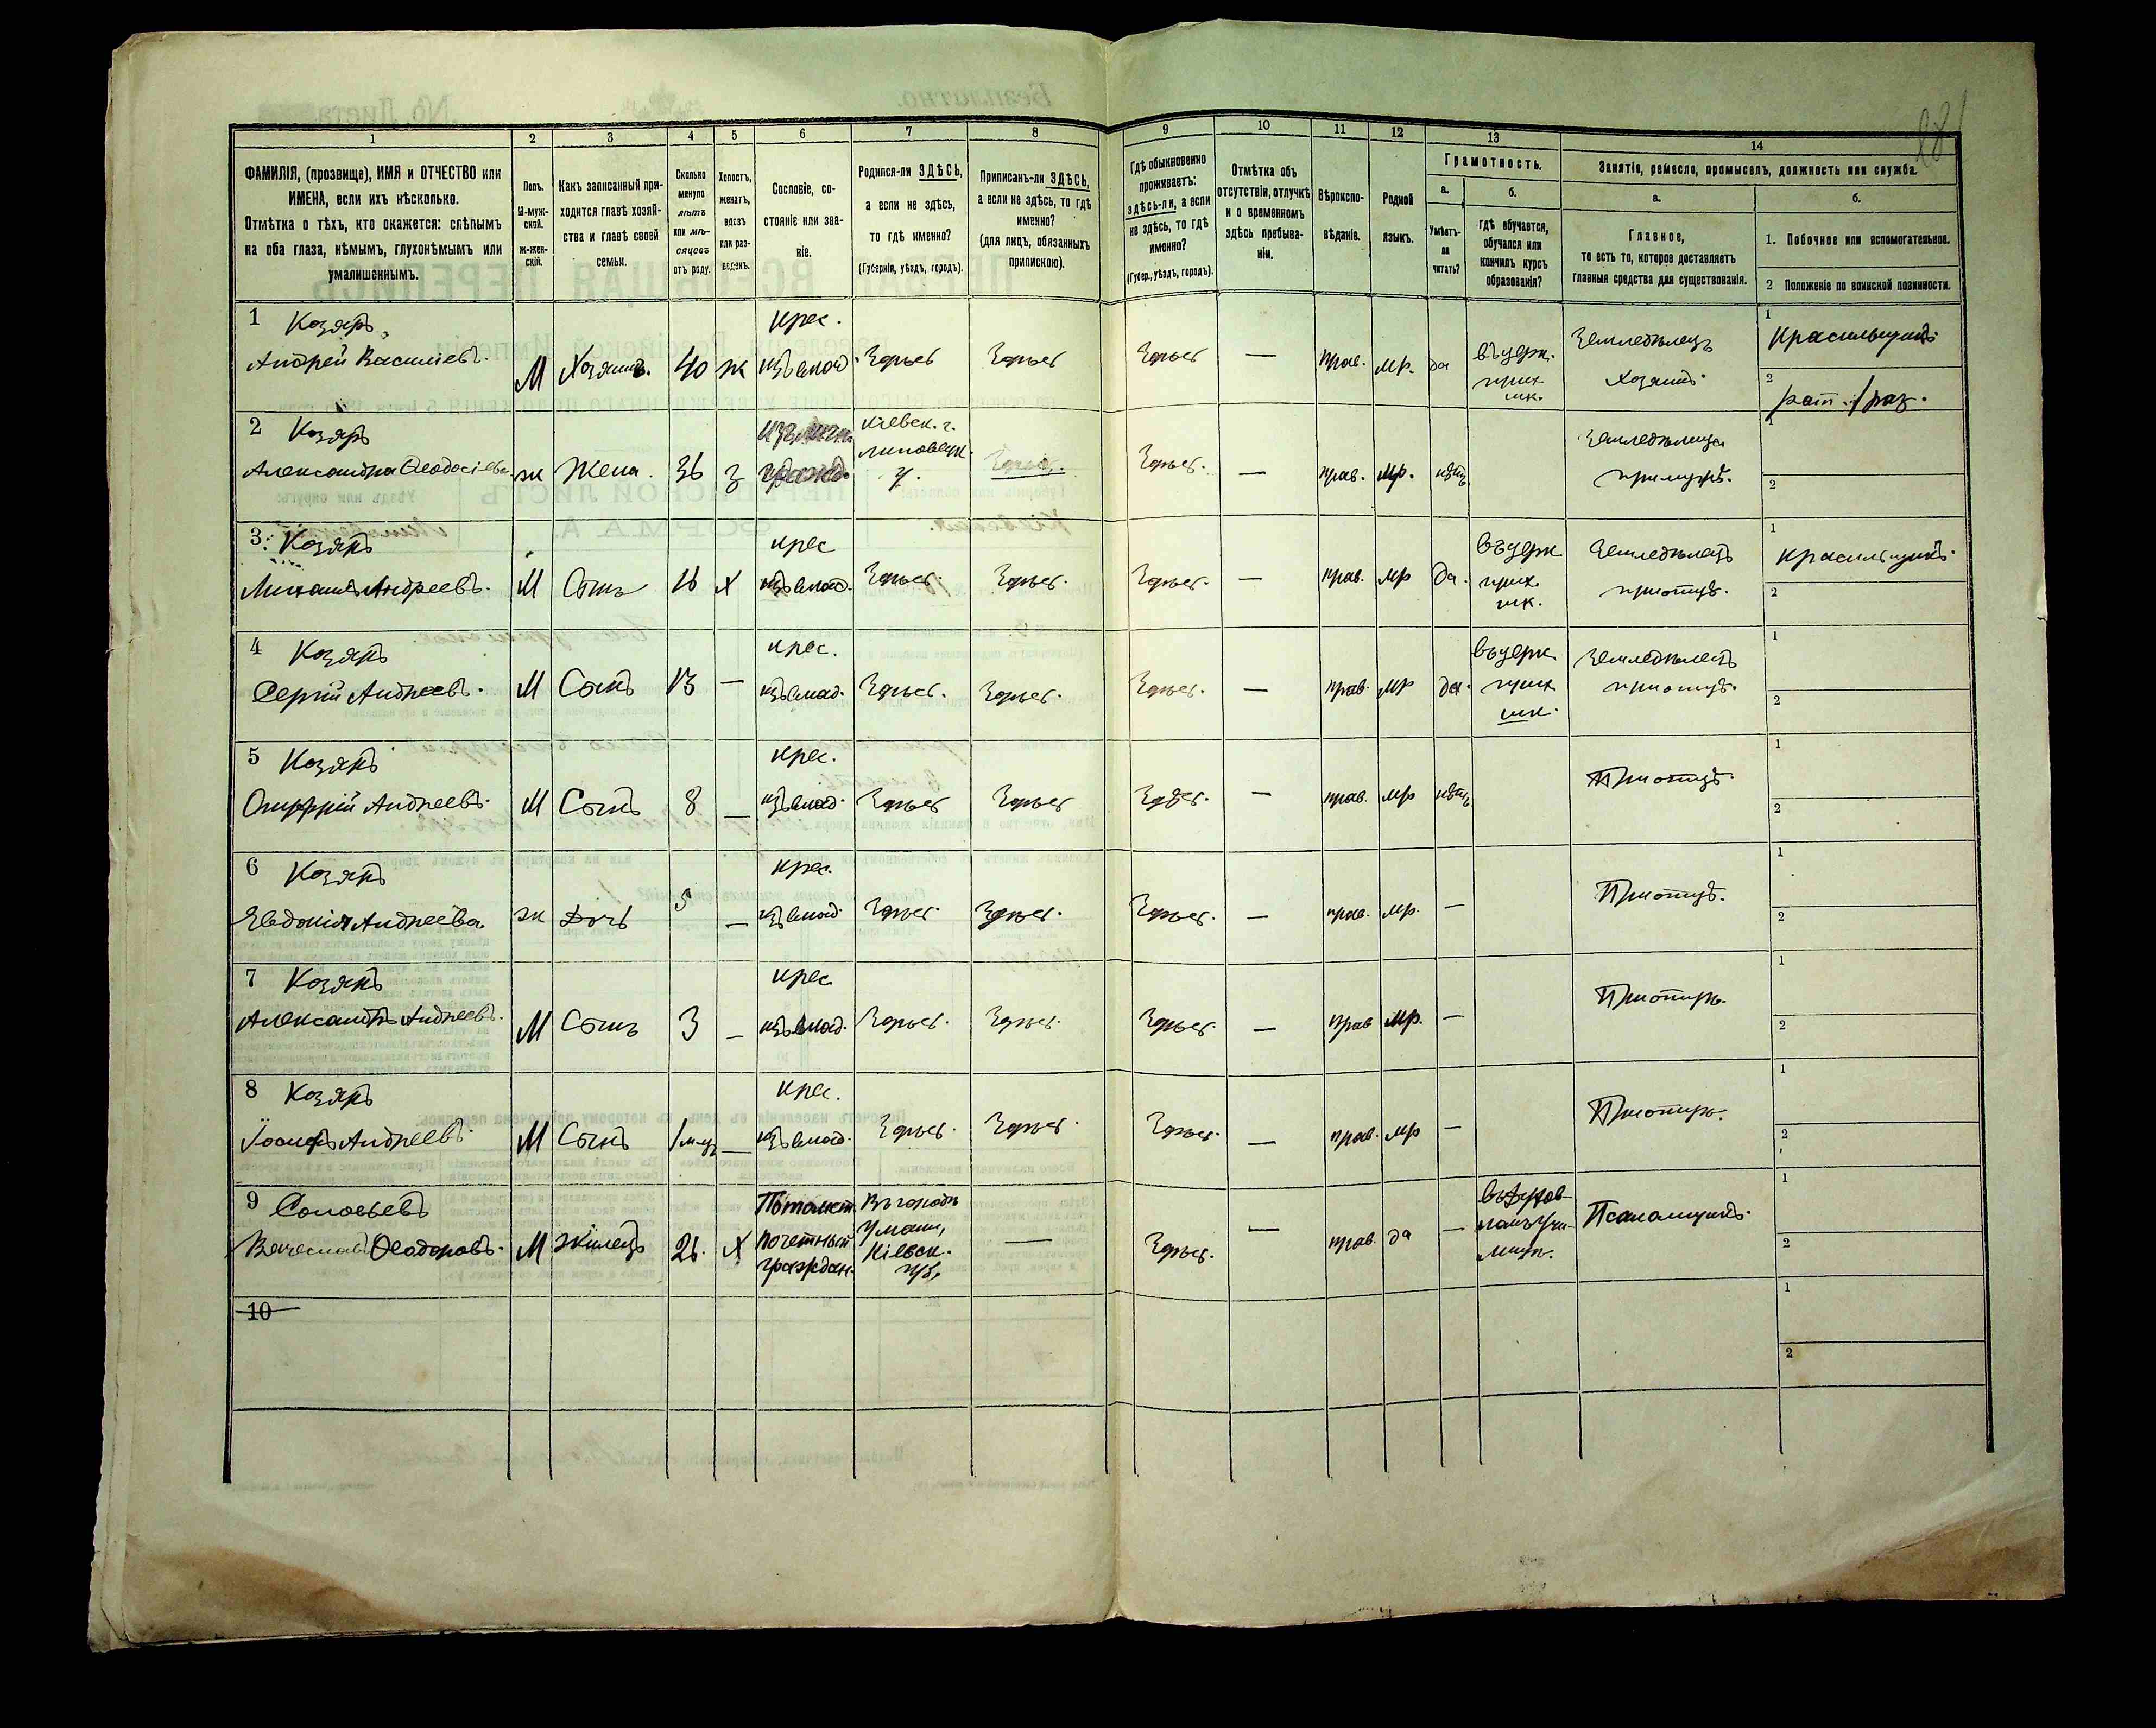 28
1 2 3 4 5 6 7 8 9 10 11 12 13 14
ФАМИЛІЯ, (прозвище), ИМЯ и ОТЧЕСТВО или
ИМЕНА, если ихъ нѣсколько.
Отмѣтка о тѣхъ, кто окажется: слѣпымъ
на оба глаза, нѣмымъ, глухонѣмымъ или
умалишеннымъ.
Полъ.
М-муж-
ской.
Ж-жен-
скій.
Какъ записанный при-
ходится главѣ хозяй-
ства и главѣ своей
семьи.
Сколько
минуло
лѣтъ
или мѣ-
сяцевъ
отъ роду.
Холостъ,
женатъ,
вдовъ
или раз-
веденъ.
Сословіе, со-
стояніе или зва-
ніе.
Родился-ли ЗДѢСЬ,
а если не здѣсь,
то гдѣ именно?
(Губернія, уѣздъ, городъ).
Приписанъ-ли ЗДѢСЬ,
а если не здѣсь, то гдѣ
именно?
(для лицъ, обязанныхъ
припискою).
Гдѣ обыкновенно
проживаетъ:
здѣсь-ли, а если
не здѣсь, то гдѣ
именно?
(Губер., уѣздъ, городъ).
Отмѣтка объ
отсутствіи, отлучкѣ
и о временномъ
здѣсь пребыва-
ніи.
Вѣроиспо-
вѣданіе.
Родной
языкъ.
Грамотность.
а.
Умѣетъ-
ли
читать?
б.
Гдѣ обучается,
обучался или
кончилъ курсъ
образованія?
Занятіе, ремесло, промыселъ, должность или служба.
а.
Главное,
то есть то, которое доставляетъ
главныя средства для существованія.
б.
1. Побочное или вспомогательное.
2 Положеніе по воинской повинности.
1 Козяръ
Андрей Васильевъ. М Хозяинъ. 40 ж крес. изъ влад. Здѣсь Здѣсь Здѣсь — прав. мр. да въ церк. прих. шк. Земледѣлецъ Хозяинъ. 1 Красильщикъ. 2 рат. 1 раз.
2 Козяръ
Александра Ѳеодосіева ж Жена. 36 з Кіевск. г. Липовецк. у. Здѣсь. — прав. мр. нѣтъ Земледѣлица при мужѣ. 1 2
3 Козяръ
Михаилъ Андреевъ. М Сынъ Х крес изъ влад. Здѣсь. Здѣсь. Здѣсь. — прав. мр да. въ церк прих шк. Земледѣлецъ при отцѣ. 1 Красильщикъ. 2
4 Козяръ
Сергій Андреевъ. М Сынъ 13 — крес. изъ влад. Здѣсь. Здѣсь. Здѣсь. — прав. мр да. въ церк прих шк. Земледѣлецъ при отцѣ. 1 2
5 Козяръ
Онуфрій Андреевъ. М Сынъ 8 — крес. изъ влад. Здѣсь Здѣсь Здѣсь. — прав. мр нѣтъ При отцѣ. 1 2
6 Козяръ
Евдокія Андреева ж Дочь 5 — крес. изъ влад. Здѣсь. Здѣсь. Здѣсь. — прав. мр. — При отцѣ. 1 2
7 Козяръ
Александръ Андреевъ. М Сынъ 3 — крес изъ влад. Здѣсь. Здѣсь. Здѣсь. — прав мр. — При отцѣ. 1 2
8 Козяръ
Іосифъ Андреевъ. М Сынъ 1 м-цъ — крес. изъ влад. Здѣсь. Здѣсь. Здѣсь. — прав. мр — При отцѣ. 1 2
9 Соловьевъ
Вячеславъ Ѳеодоровъ. М Жилецъ 21. Х Потомст. почетный граждан. Въ городѣ Умани, Кіевск. губ. — Здѣсь. — прав. да — въ духов- номъ учи- лищѣ. Псаломщикъ. 1 2
10 1 2